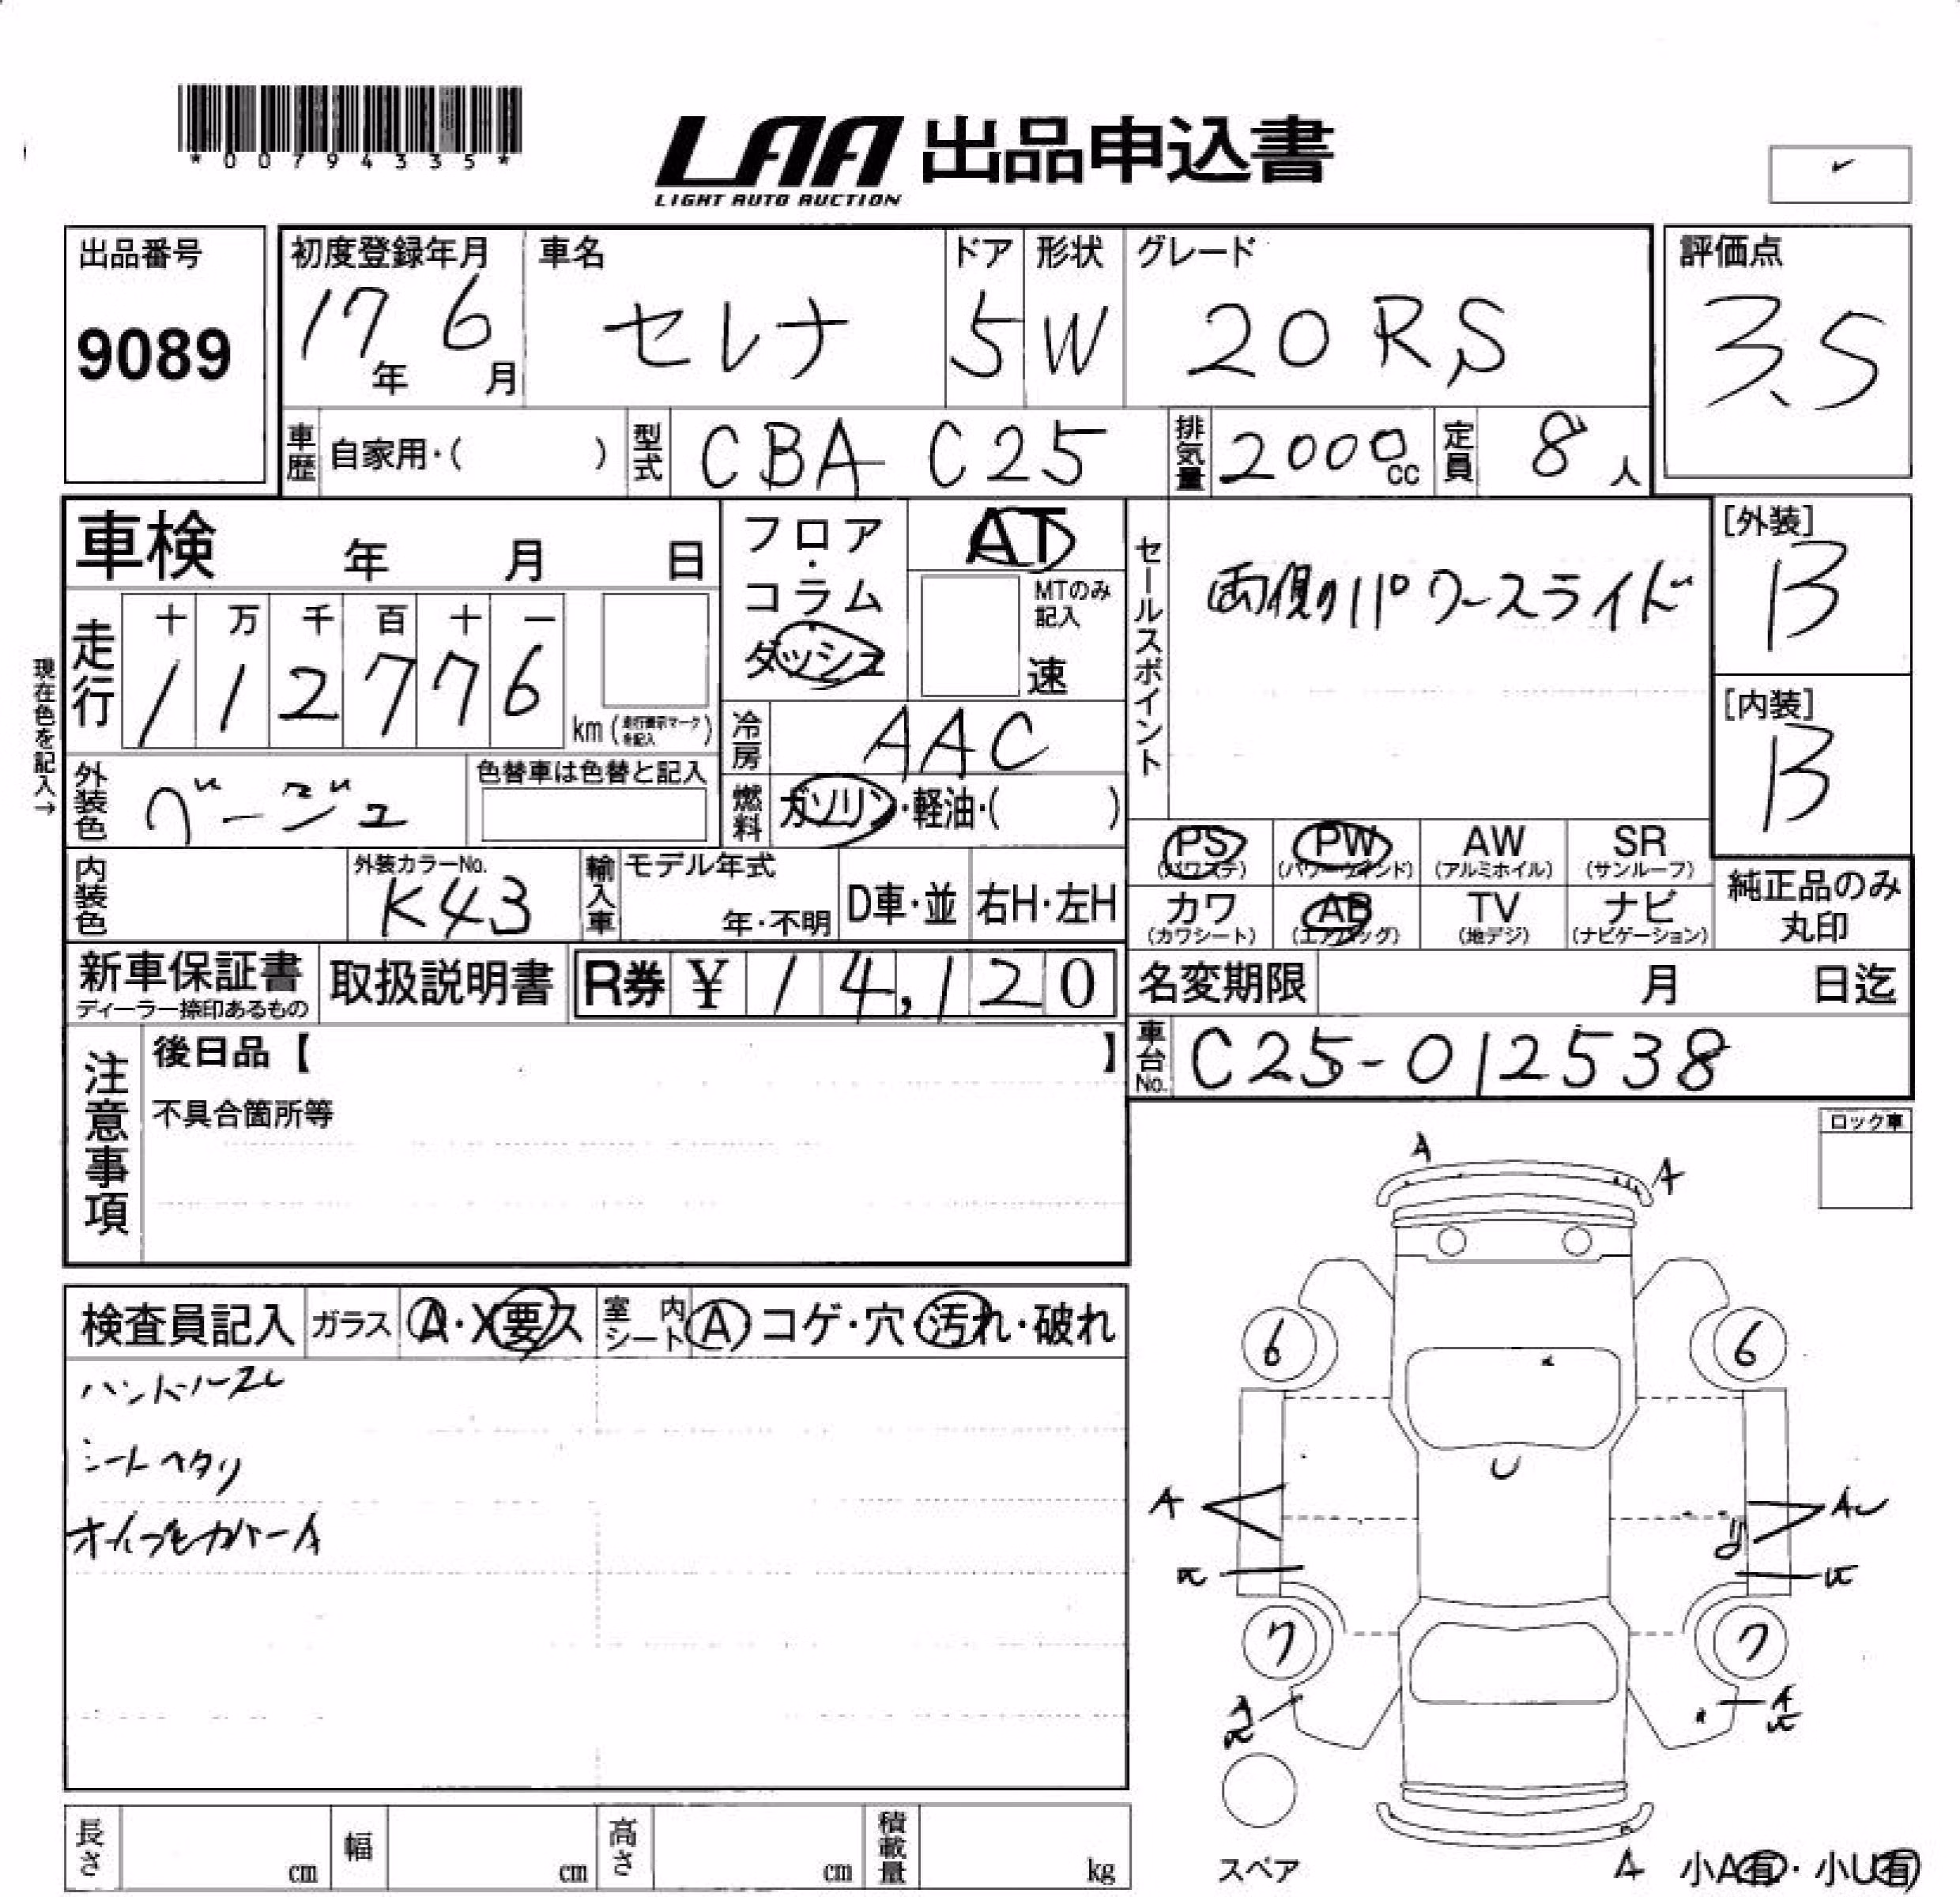 *00794335*
LAA 出品申込書
LIGHT AUTO AUCTION
出品番号
9089
初度登録年月
17年 6月
車名
セレナ
ドア
5
形状
W
グレード
20RS
評価点
3.5
車歴 自家用・( )
型式 CBA C25
排気量 2000cc
定員 8人
車検 年 月 日
現在色を記入→
走行
十 万 千 百 十 一
1 1 2 7 7 6
km(走行表示マークを記入)
フロア・コラム・ダッシュ
AT
MTのみ記入
速
セールスポイント
両側パワースライド
[外装]
B
[内装]
B
冷房 AAC
燃料 ガソリン・軽油・( )
外装色 ベージュ
色替車は色替と記入
内装色
外装カラーNo.
K43
輸入車
モデル年式
年・不明
D車・並
右H・左H
PS (パワステ)
PW (パワーウインド)
AW (アルミホイル)
SR (サンルーフ)
カワ (カワシート)
AB (エアバッグ)
TV (地デジ)
ナビ (ナビゲーション)
純正品のみ丸印
新車保証書
ディーラー捺印あるもの
取扱説明書
R券 ¥ 14,120
名変期限 月 日迄
車台No. C25-012538
注意事項
後日品【 】
不具合箇所等
ロック車
検査員記入
ガラス A・X要ス
室内シート A コゲ・穴・汚れ・破れ
ハンドルスレ
シートヘタリ
A
A
6
6
U
A
AU
7
7
A
スペア
小A有・小U有
長さ cm
幅 cm
高さ cm
積載量 kg